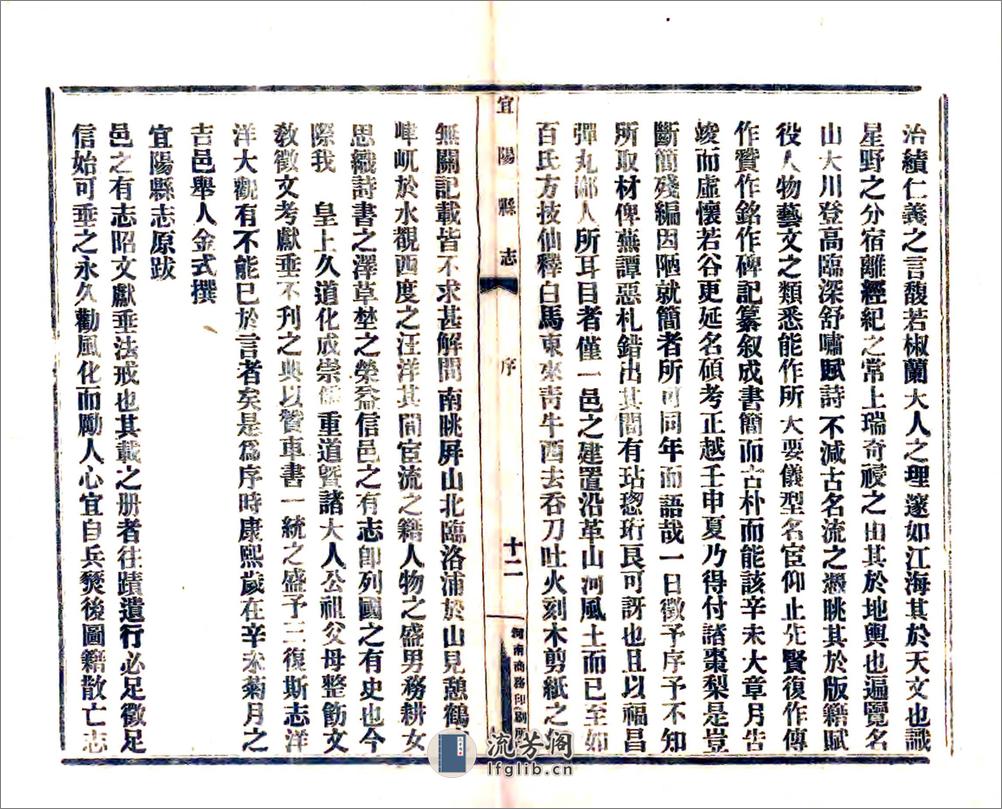 治績仁義之言馥若椒蘭大人之理邃如江海其於天文也識
星野之分宿離經紀之常上瑞奇祲之由其於地輿也遍覽名
山大川登高臨深舒嘯賦詩不減古名流之憑眺其於版籍賦
役人物藝文之類悉能作所大要儀型名宦仰止先賢復作傳
作贊作銘作碑記纂叙成書簡而古朴而能該辛未大章月告
竣而虛懷若谷更延名碩考正越壬申夏乃得付諸棗梨是豈
斷簡殘編因陋就簡者所可同年而語哉一日徵予序予不知
所取材俾蕪譚惡札錯出其間有玷璁珩良可訝也且以福昌
彈丸鄙人所耳目者僅一邑之建置沿革山河風土而已至如
百氏方技仙釋白馬東來靑牛西去吞刀吐火刻木剪紙之
宜陽縣志
序
十二
河南商務印刷所
無關記載皆不求甚解間南眺屏山北臨洛浦於山見憩鶴
峍屼於水觀西度之汪洋其間宦流之籍人物之盛男務耕女
思織詩書之澤草埜之榮益信邑之有志卽列國之有史也今
際我 皇上久道化成崇儒重道暨諸大人公祖父母整飭文
敎徵文考獻垂不刊之典以贊車書一統之盛予三復斯志洋
洋大觀有不能已於言者矣是爲序時康熙歲在辛未菊月之
吉邑舉人金式撰
宜陽縣志原跋
邑之有志昭文獻垂法戒也其載之册者往蹟遺行必足徵足
信始可垂之永久勸風化而勵人心宜自兵燹後圖籍散亡志
流芳阁
lfglib.cn